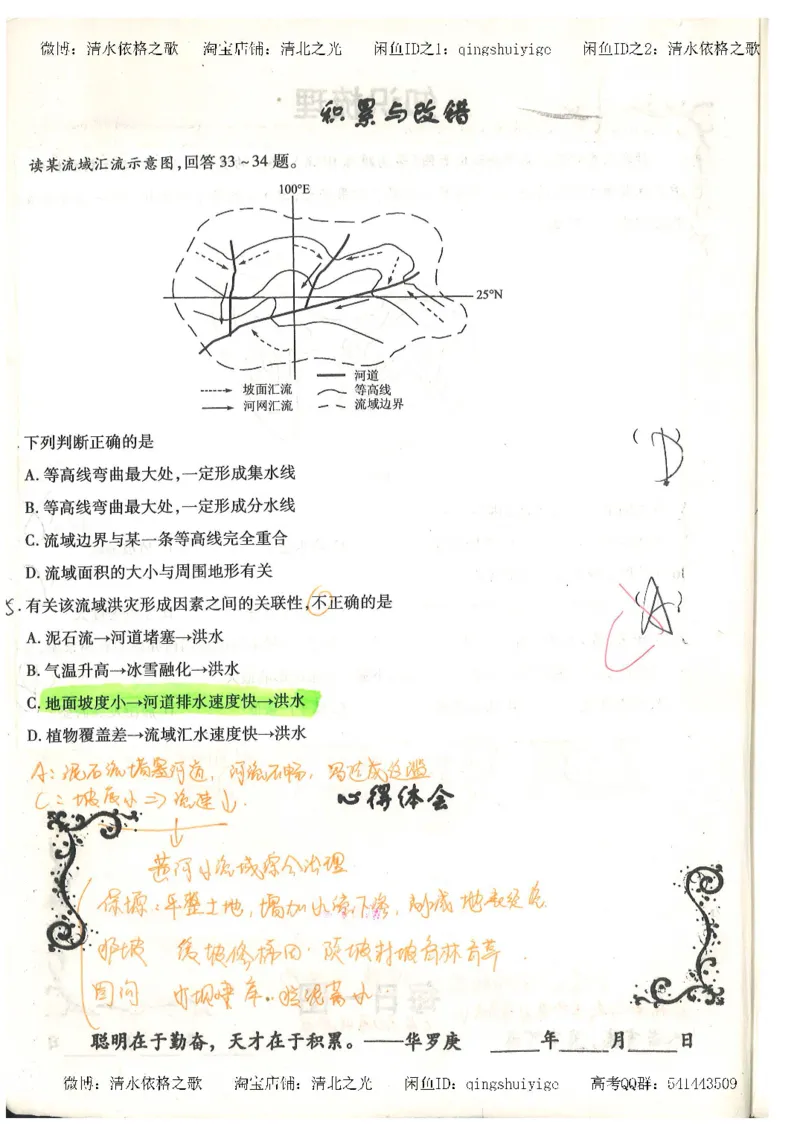 微博：清水依格之歌 淘宝店铺：清北之光 闲鱼ID之1：qingshuiyige 闲鱼ID之2：清水依格之歌
积累与改错
读某流域汇流示意图,回答33~34题。
100°E
25°N
河道
坡面汇流 等高线
河网汇流 流域边界
下列判断正确的是
(D)
A. 等高线弯曲最大处,一定形成集水线
B. 等高线弯曲最大处,一定形成分水线
C. 流域边界与某一条等高线完全重合
D. 流域面积的大小与周围地形有关
5. 有关该流域洪灾形成因素之间的关联性,不正确的是
(A)
A. 泥石流→河道堵塞→洪水
B. 气温升高→冰雪融化→洪水
C. 地面坡度小→河道排水速度快→洪水
D. 植物覆盖差→流域汇水速度快→洪水
A：泥石流堵塞河道，河流不畅，易造成泛滥
C：坡度小⇒流速小.
心得体会
黄河小流域综合治理
保塬：平整土地，增加水流下渗，削减地表径流
护坡 缓坡修梯田. 陡坡封坡育林育草
固沟 水坝
聪明在于勤奋，天才在于积累。——华罗庚 ____年____月____日
微博：清水依格之歌 淘宝店铺：清北之光 闲鱼ID：qingshuiyige 高考QQ群：541443509